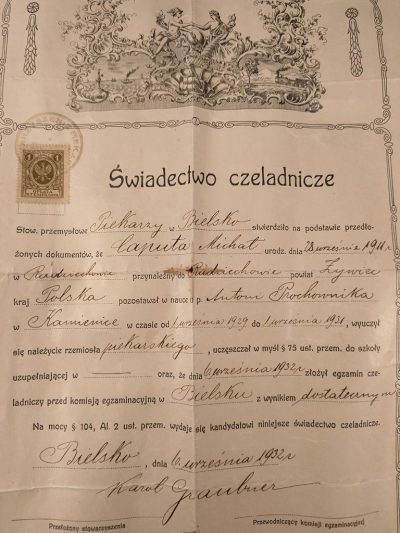 Świadectwo czeladnicze
Słow. przemysłowe Piekarzy w Bielsko stwierdziło na podstawie przedło-
żonych dokumentów, że Caputa Michał urodz. dnia 28 września 1911 r
w Radziechowie przynależny do Radziechowie powiat Żywiec
kraj Polska pozostawał w nauce u p. Antoni Prochownika
w Kamienice w czasie od 1 września 1929 do 1 września 1931, wyuczył
się należycie rzemiosła piekarskiego, uczęszczał w myśl § 75 ust. przem. do szkoły
uzupełniającej w oraz, że dnia 6 września 1932 r złożył egzamin cze-
ladniczy przed komisją egzaminacyjną w Bielsku z wynikiem dostatecznym
Na mocy § 104, Al. 2 ust. przem. wydaje się kandydatowi niniejsze świadectwo czeladnicze.
Bielsko, dnia 6 września 1932 r
Karol Graubner
Przełożony stowarzyszenia
Przewodniczący komisji egzaminacyjnej